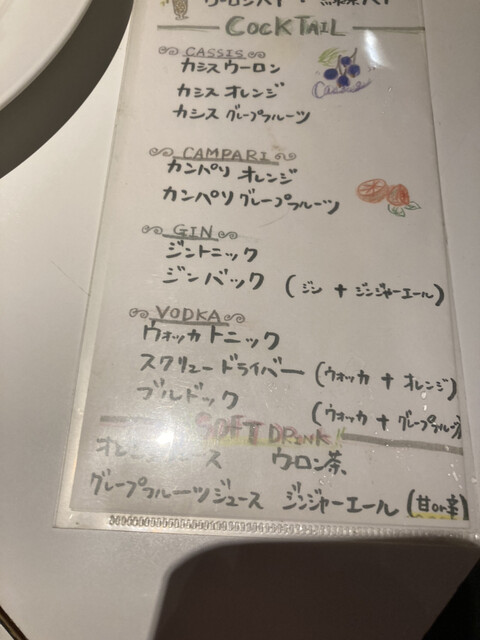 COCKTAIL
CASSIS
カシスウーロン
カシス オレンジ
Cassis
カシス グレープフルーツ
CAMPARI
カンパリ オレンジ
カンパリ グレープフルーツ
GIN
ジントニック
ジンバック (ジン + ジンジャーエール)
VODKA
ウォッカ トニック
スクリュードライバー (ウォッカ + オレンジ)
ブルドック (ウォッカ + グレープフルーツ)
SOFT DRINK!!
オレンジジュース ウーロン茶
グレープフルーツジュース ジンジャーエール (甘or辛)